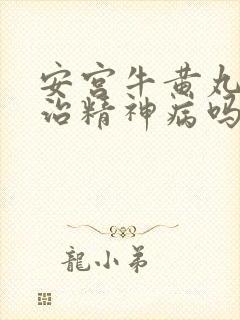 安宫牛黄丸
治精神病吗
龍小弟